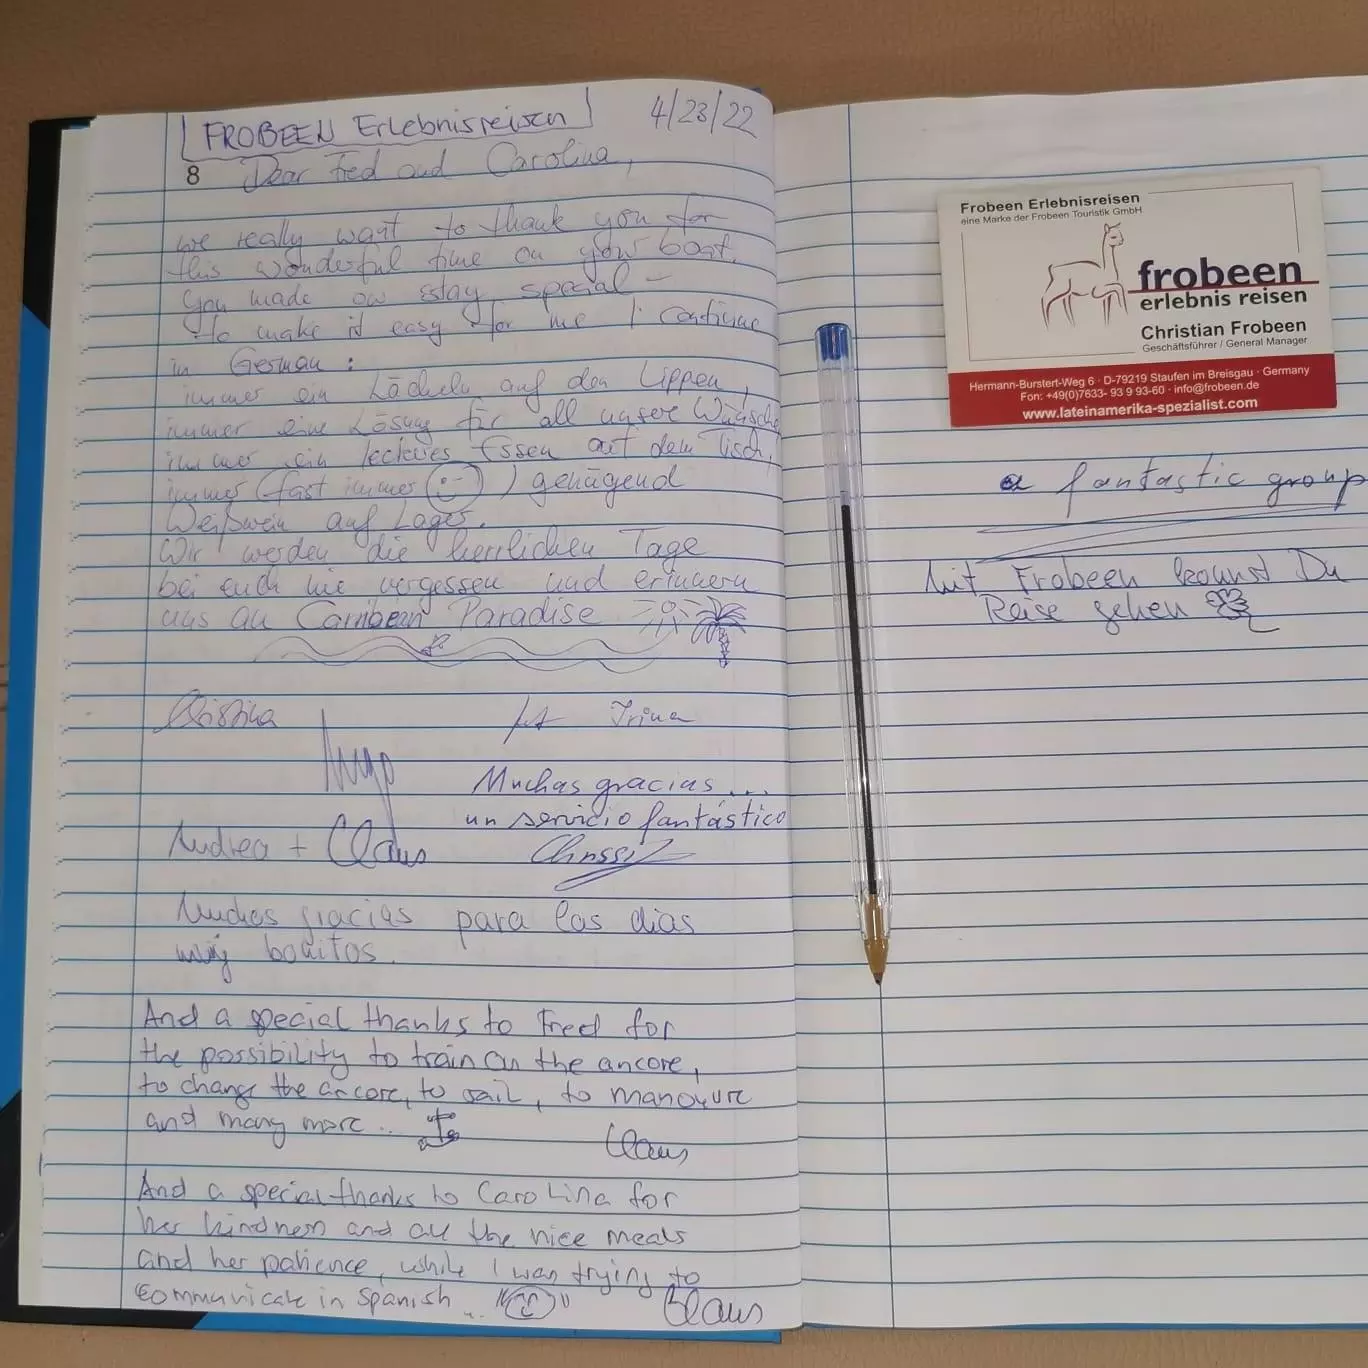 FROBEEN Erlebnisreisen
4/23/22
8
Dear Fred and Carolina,
we really want to thank you for
this wonderful time on your boat.
You made our sstay special –
to make it easy for me I continue
in German:
immer ein Lächeln auf den Lippen,
immer eine Lösung für all unsere Wünsche
immer ein leckeres Essen auf dem Tisch,
immer (fast immer) genügend
Weißwein auf Lager.
Wir werden die herrlichen Tage
bei euch nie vergessen und erinnern
uns an Carribean Paradise
Irina
Muchas gracias...
un servicio fantástico
Andrea + Claus
Muchas gracias para los dias
muy bonitos.
And a special thanks to Fred for
the possibility to train on the ancore,
to change the ancore, to sail, to manovure
and many more..
Claus
And a special thanks to Carolina for
her kindness and all the nice meals
and her patience, while I was trying to
communicate in Spanish...
Claus
Frobeen Erlebnisreisen
eine Marke der Frobeen Touristik GmbH
frobeen
erlebnis reisen
Christian Frobeen
Geschäftsführer / General Manager
Hermann-Burstert-Weg 6 · D-79219 Staufen im Breisgau · Germany
Fon: +49(0)7633- 93 9 93-60 · info@frobeen.de
www.lateinamerika-spezialist.com
a fantastic group
Mit Frobeen kannst Du
Reise gehen